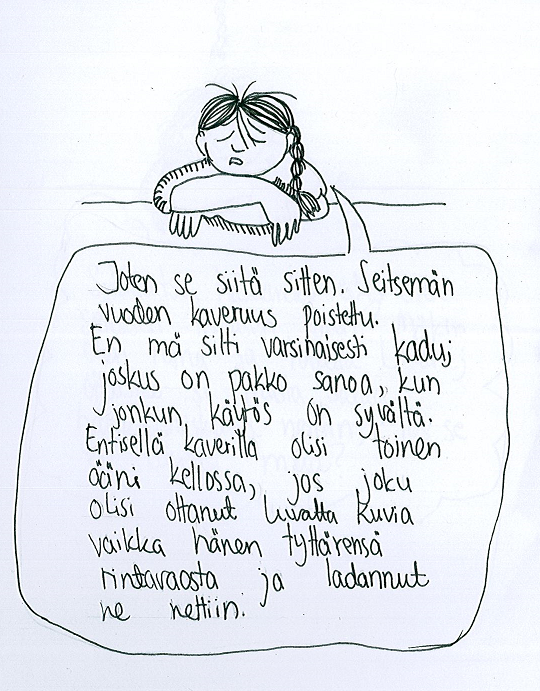 Joten se siitä sitten. Seitsemän
vuoden kaveruus poistettu.
En mä silti varsinaisesti kaduj
joskus on pakko sanoa, kun
jonkun käytös on syvältä.
Entisellä kaverilla olisi toinen
ääni kellossa, jos joku
olisi ottanut luvatta kuvia
vaikka hänen tyttärensä
rintavaosta ja ladannut
ne nettiin.